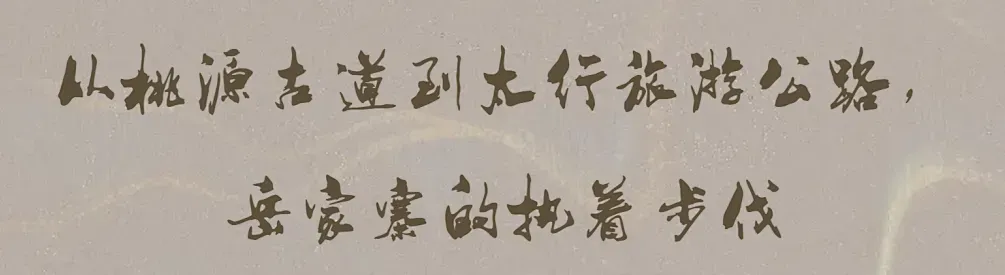 从桃源古道到太行旅游公路，
岳家寨的执着步伐